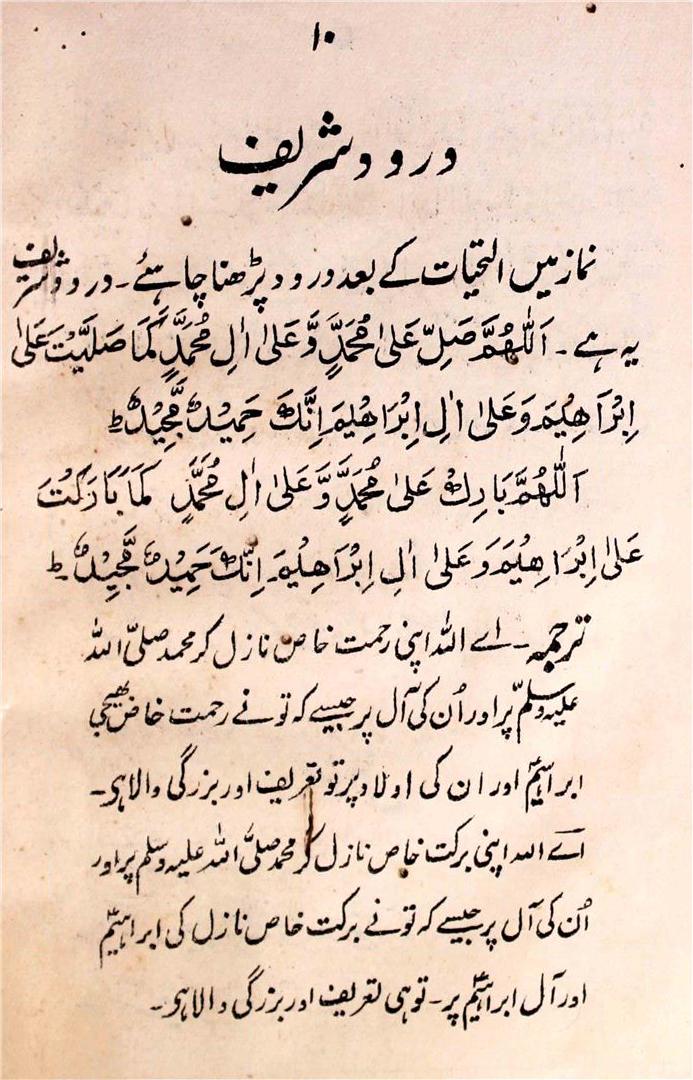 ۱۰
درود شریف
نماز میں التحیات کے بعد درود پڑھنا چاہئے۔ درود شریف
یہ ہے۔ اَللّٰهُمَّ صَلِّ عَلىٰ مُحَمَّدٍ وَّ عَلىٰ اٰلِ مُحَمَّدٍ كَمَا صَلَّيْتَ عَلىٰ
اِبْرَاهِيْمَ وَ عَلىٰ اٰلِ اِبْرَاهِيْمَ اِنَّكَ حَمِيْدٌ مَّجِيْدٌ ؕ
اَللّٰهُمَّ بَارِكْ عَلىٰ مُحَمَّدٍ وَّ عَلىٰ اٰلِ مُحَمَّدٍ كَمَا بَارَكْتَ
عَلىٰ اِبْرَاهِيْمَ وَ عَلىٰ اٰلِ اِبْرَاهِيْمَ اِنَّكَ حَمِيْدٌ مَّجِيْدٌ ؕ۔
ترجمہ۔ اے اللہ اپنی رحمت خاص نازل کر محمد صلّی اللہ
علیہ وسلّم پر اور اُن کی آل پر جیسے کہ تو نے رحمت خاص بھیجی
ابراہیمؑ اور ان کی اولاد پر تو تعریف اور بزرگی والا ہی۔
اے اللہ اپنی برکت خاص نازل کر محمد صلّی اللہ علیہ وسلم پر اور
اُن کی آل پر جیسے کہ تو نے برکت خاص نازل کی ابراہیمؑ
اور آل ابراہیمؑ پر۔ تو ہی تعریف اور بزرگی والا ہی۔